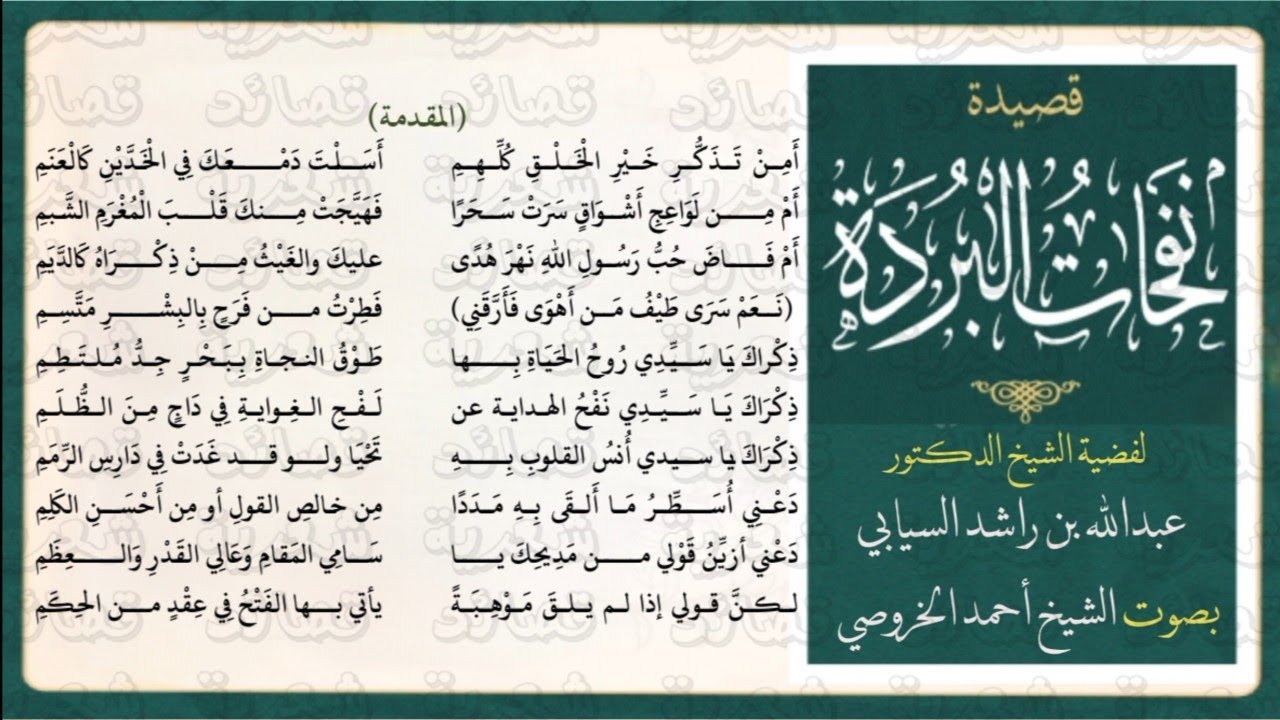 (المقدمة)
أَمِنْ تَذَكُّرِ خَيْرِ الْخَلْقِ كُلِّهِمِ أَسَلْتَ دَمْعَكَ فِي الْخَدَّيْنِ كَالْعَنَمِ
أَمْ مِن لَوَاعِجِ أَشْوَاقٍ سَرَتْ سَحَرًا فَهَيَّجَتْ مِنكَ قَلْبَ الْمُغْرَمِ الشَّبِمِ
أَمْ فَاضَ حُبُّ رَسُولِ اللهِ نَهْرَ هُدًى عليكَ والغَيْثُ مِنْ ذِكْرَاهُ كَالدَّيَمِ
(نَعَمْ سَرَى طَيْفُ مَن أَهْوَى فَأَرَّقَنِي) فَطِرْتُ من فَرَحٍ بِالبِشْرِ مَتَّسِمِ
ذِكْرَاكَ يَا سَيِّدِي رُوحُ الحَيَاةِ بِها طَوْقُ النجاةِ بِبَحْرٍ جِدُّ مُلتَطِمِ
ذِكْرَاكَ يَا سَيِّدِي نَفْحُ الهدايةِ عن لَفْحِ الغِوايةِ فِي دَاجٍ مِنَ الظُّلَمِ
ذِكْرَاكَ يا سيدي أُنسُ القلوبِ بِهِ تَحْيَا ولو قد غَدَتْ فِي دَارِسِ الرِّمَمِ
دَعْنِي أُسَطِّرُ مَا أَلقَى بِهِ مَدَدًا مِن خالصِ القولِ أو مِن أَحْسَنِ الكَلِمِ
دَعْني أزيِّنُ قَوْلي من مَدِيحِكَ يا سَامِي المَقامِ وَعَالِي القَدْرِ وَالعِظَمِ
لكنَّ قولي إذا لم يلقَ مَوْهِبَةً يأتي بها الفَتْحُ فِي عِقْدٍ من الحِكَمِ
قصيدة
نَفَحَاتُ البُرْدَة
لفضية الشيخ الدكتور
عبدالله بن راشد السيابي
بصوت الشيخ أحمد الخروصي
قصائد شعرية